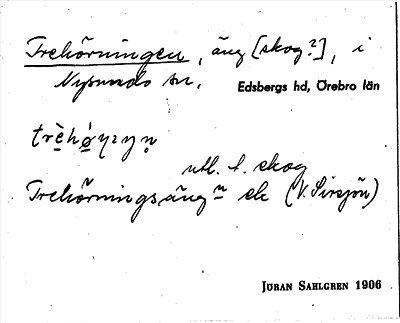 Trehörningen, äng [skog?], i
Nysunds sn.
Edsbergs hd, Örebro län
utl. t. skog
Trehörningsäng sk (V. Sirsjön)
JÖRAN SAHLGREN 1906